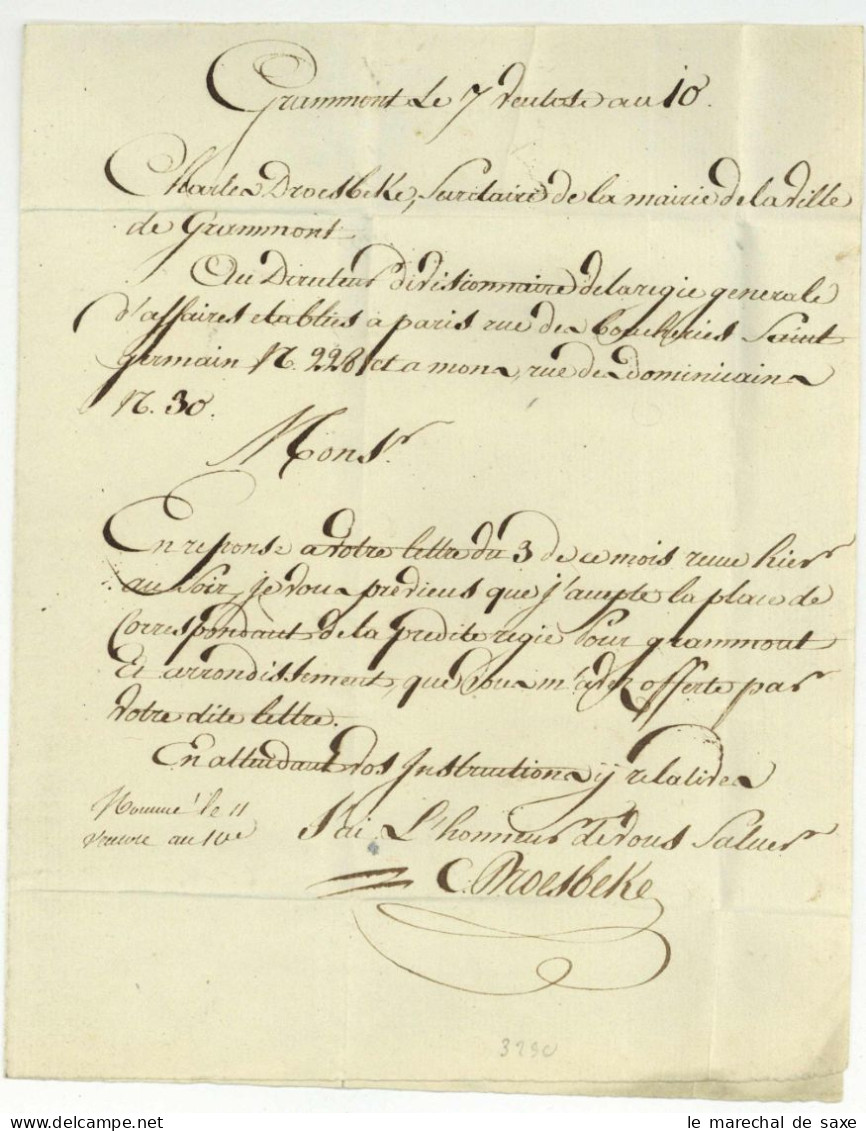 Grammont le 7 ventose an 10.
Charles Droesbeke, Secretaire de la mairie de la ville
de Grammont
Au Directeur divisionnaire de la regie generale
d'affaires etablies a paris rue des boucheries Saint
germain N. 228 et a mons, rue des dominicains
N. 30.
Monsr.
En reponse a votre lettre du 3 de ce mois recue hier
au Soir, je vous previens que j'accepte la place de
Correspondant de la predite regie pour grammont
Et arrondissement, que vous m'avez offerte par
votre dite lettre.
En attendant vos Instructions ÿ relatives
J'ai L'honneur de vous Saluer
C. Droesbeke
Nommé le 11
ventose an 10e
3290
le marechal de saxe